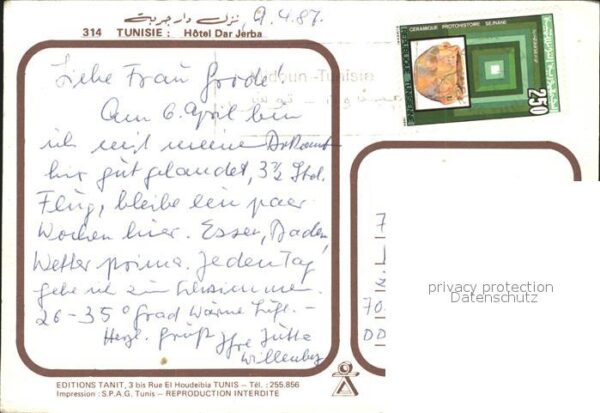 نزل دار جربة
9.4.87.
314 TUNISIE : Hôtel Dar Jerba
CERAMIQUE PROTOHISTOIRE SEJNANE
REPUBLIQUE TUNISIENNE
250
Liebe Frau
Am 6. April bin
ich mit meine
hier gut gelandet, 3½ Std.
Flug, bleibe ein paar
Wochen hier. Essen, Baden,
Wetter prima. Jeden Tag
gehe ich zum Schwimmen.
26-35° Grad Wärme Luft. -
Herzl. Grüße Ihre Jutta
Willenberg
7
K. L
70
DD
privacy protection
Datenschutz
EDITIONS TANIT, 3 bis Rue El Houdeibia TUNIS - Tél. : 255.856
Impression : S.P.A.G. Tunis - REPRODUCTION INTERDITE